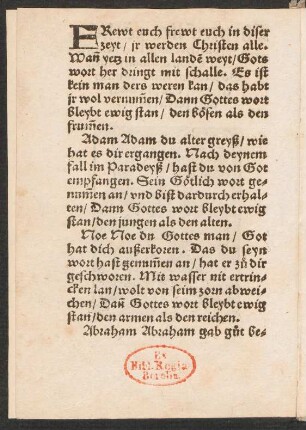 FRewt euch frewt euch in diser
zeyt / jr werden Christen alle.
Wañ yetz in allen landẽ weyt / Gots
wort her dringt mit schalle. Es ist
kein man ders weren kan / das habt
jr wol vernum̃en / Dann Gottes wort
bleybt ewig stan / den bösen als den
frum̃en.
Adam Adam du alter greyß / wie
hat es dir ergangen. Nach deynem
fall im Paradeyß / hast du von Got
empfangen. Sein Götlich wort ge-
num̃en an / vnd bist dardurch erhal-
ten / Dann Gottes wort bleybt ewig
stan / den jungen als den alten.
Noe Noe du Gottes man / Got
hat dich außerkoren. Das du seyn
wort hast genum̃en an / hat er zů dir
geschworen. Mit wasser nit ertrin-
cken lan / wolt von seim zorn abwei-
chen / Dañ Gottes wort bleybt ewig
stan / den armen als den reichen.
Abraham Abraham gab gůt be-
Ex
Bibl. Regia
Berolin.